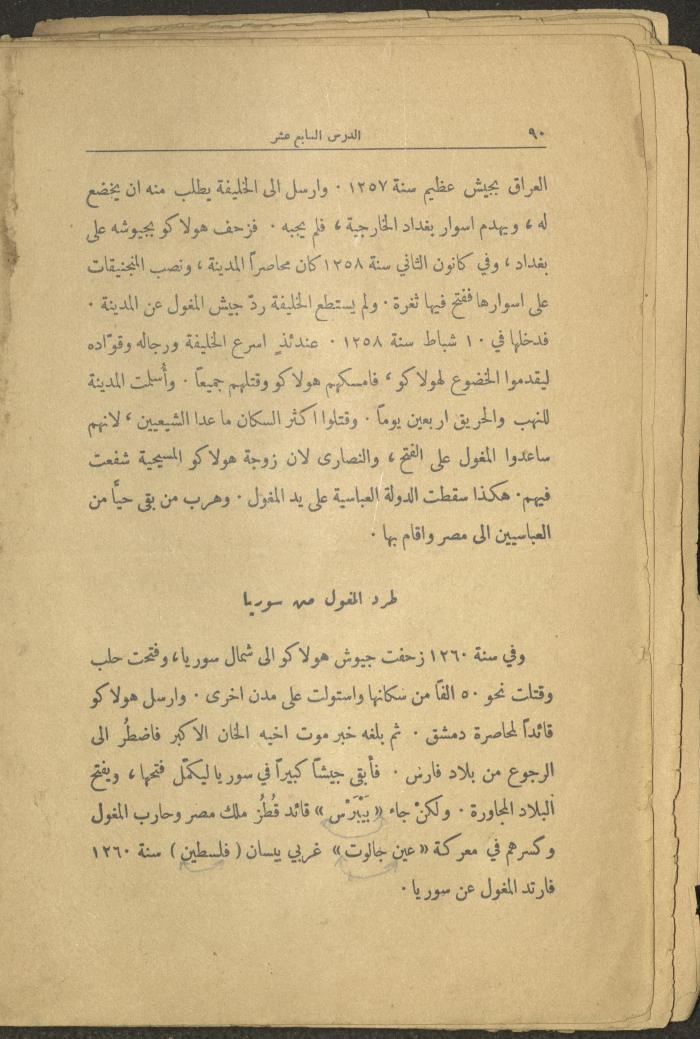 ٩٠ الدرس السابع عشر
العراق بجيش عظيم سنة ١٢٥٧ · وارسل الى الخليفة يطلب منه ان يخضع
له ، ويهدم اسوار بغداد الخارجية ، فلم يجبه · فزحف هولاكو بجيوشه على
بغداد ، وفي كانون الثاني سنة ١٢٥٨ كان محاصراً المدينة ، ونصب المنجنيقات
على اسوارها ففتح فيها ثغرة · ولم يستطع الخليفة ردّ جيش المغول عن المدينة ·
فدخلها في ١٠ شباط سنة ١٢٥٨ · عندئذٍ اسرع الخليفة ورجاله وقوّاده
ليقدموا الخضوع لهولاكو ، فامسكهم هولاكو وقتلهم جميعاً · وأُسلمت المدينة
للنهب والحريق اربعين يوماً · وقتلوا اكثر السكان ما عدا الشيعيين ، لانهم
ساعدوا المغول على الفتح ، والنصارى لان زوجة هولاكو المسيحية شفعت
فيهم · هكذا سقطت الدولة العباسية على يد المغول · وهرب من بقي حيّاً من
العباسيين الى مصر واقام بها ·
طرد المغول من سوريا
وفي سنة ١٢٦٠ زحفت جيوش هولاكو الى شمال سوريا ، وفتحت حلب
وقتلت نحو ٥٠ الفاً من سكانها واستولت على مدن اخرى · وارسل هولاكو
قائداً لمحاصرة دمشق · ثم بلغه خبر موت اخيه الخان الاكبر فاضطُر الى
الرجوع من بلاد فارس · فأبقى جيشاً كبيراً في سوريا ليكمّل فتحها ، ويفتح
البلاد المجاورة · ولكنْ جاء « بَيْبَرْس » قائد قُطُز ملك مصر وحارب المغول
وكسرهم في معركة « عين جالوت » غربي بيسان ( فلسطين ) سنة ١٢٦٠
فارتد المغول عن سوريا ·